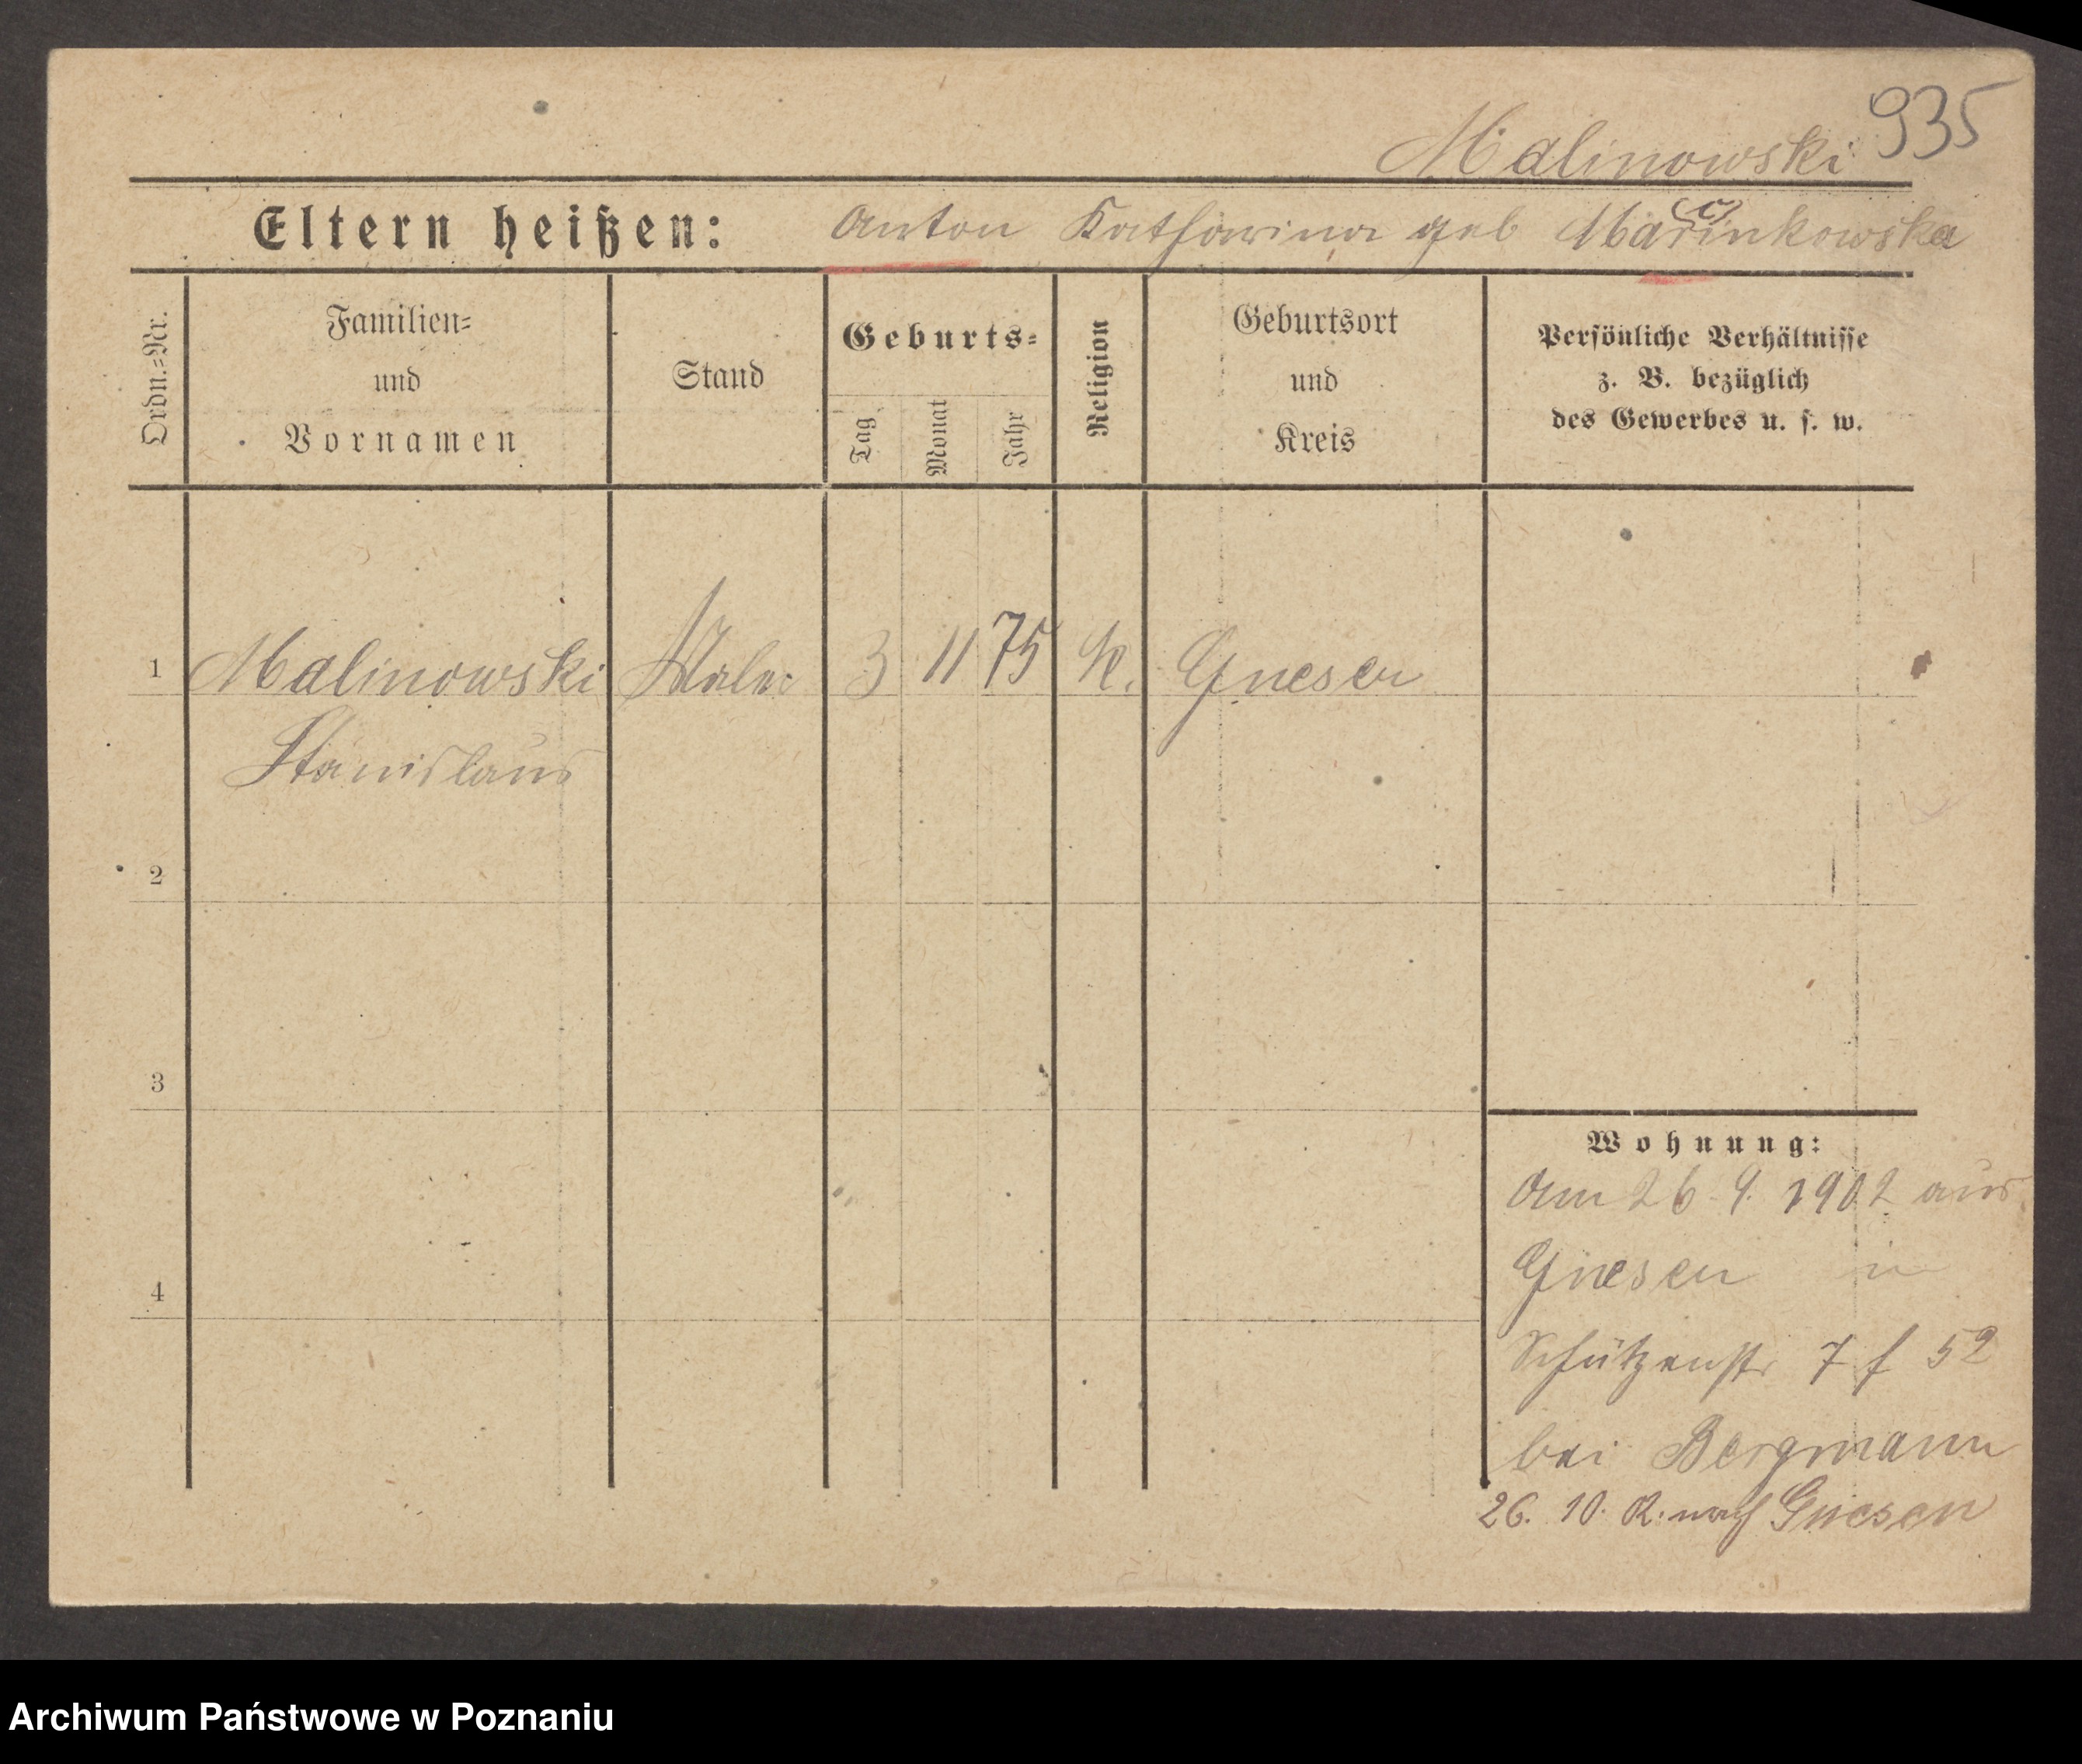 935
Malinowski
Eltern heißen: Anton Katharina geb Marcinkowska
Ordn.=Nr.
Familien=
und
Vornamen
Stand
Geburts=
Tag
Monat
Jahr
Religion
Geburtsort
und
Kreis
Persönliche Verhältnisse
z. B. bezüglich
des Gewerbes u. s. w.
1 Malinowski Maler 3 11 75 K. Gnesen
Stanislaus
2
3
4
Wohnung:
Am 26. 9. 1902 aus
Gnesen in
Schützenstr 7 f 52
bei Bergmann
26. 10. R. nach Gnesen
Archiwum Państwowe w Poznaniu